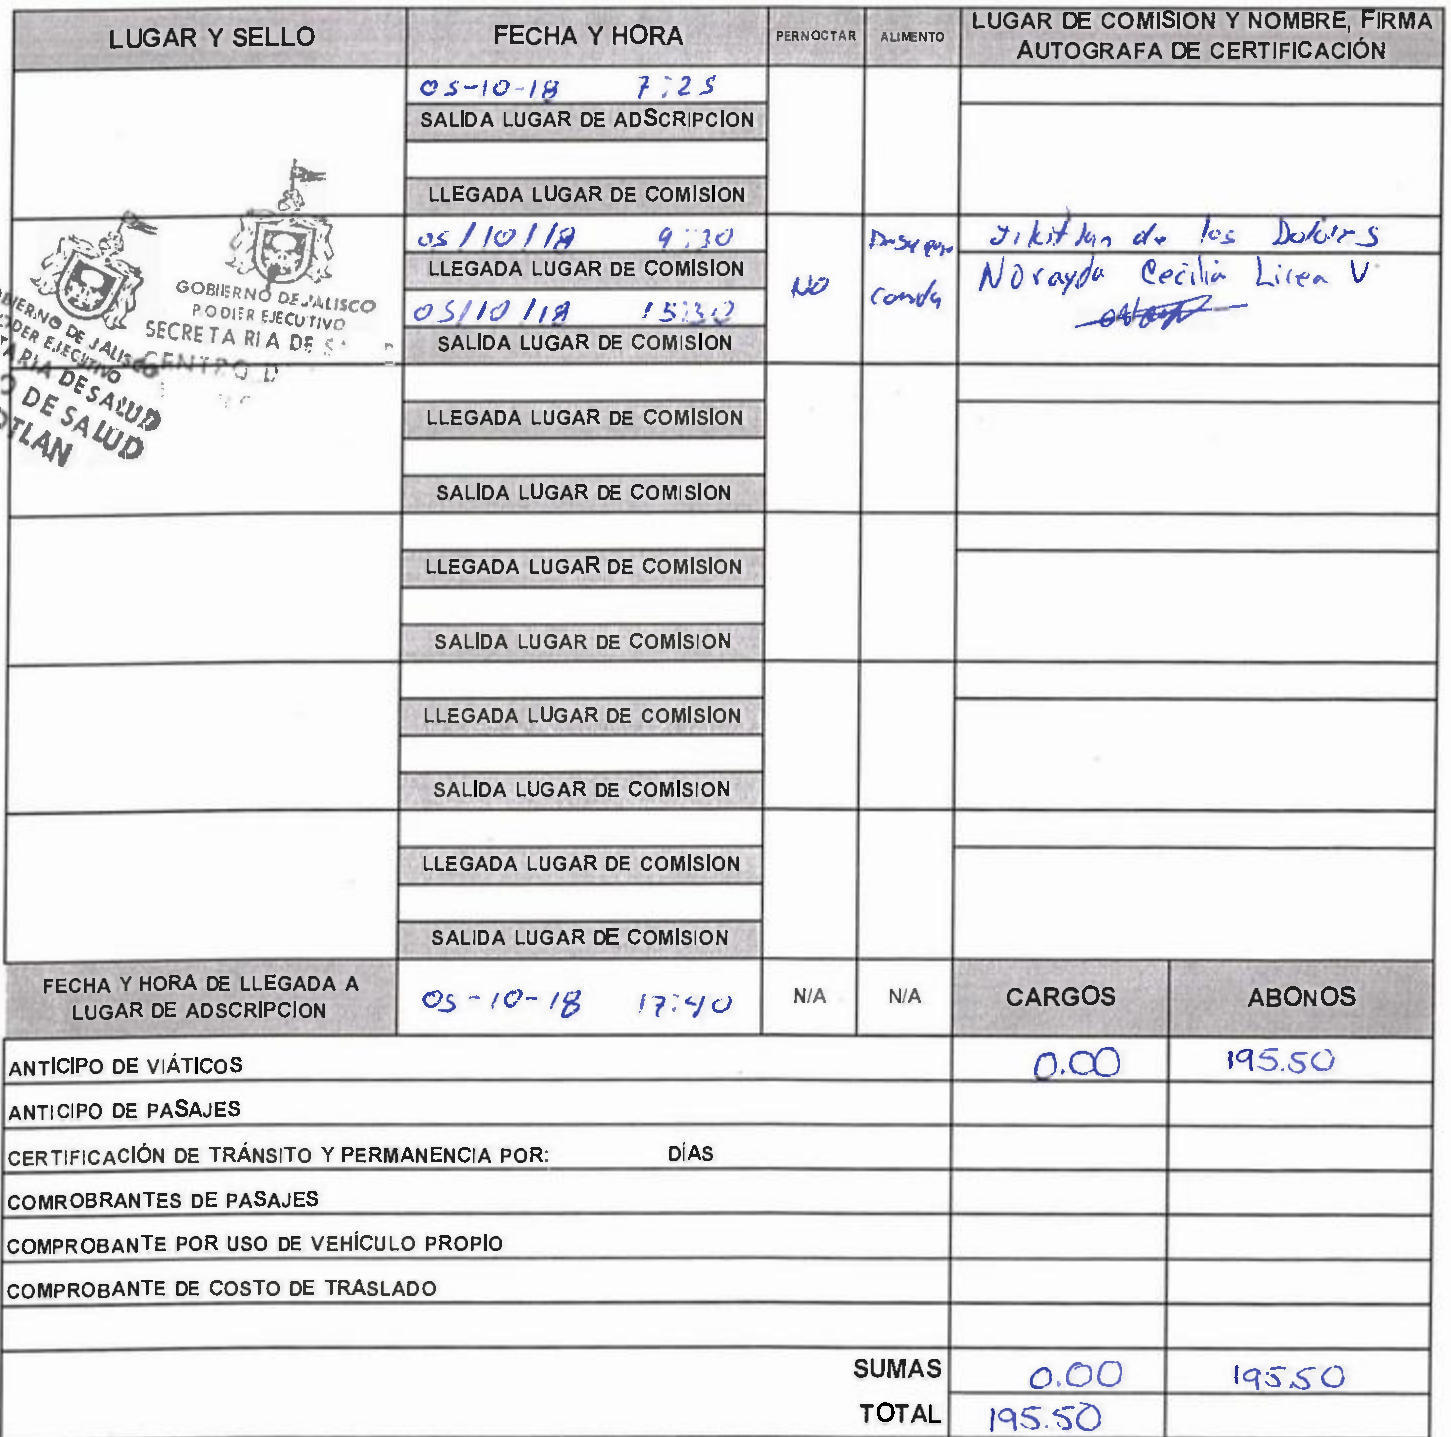 LUGAR Y SELLO
FECHA Y HORA
PERNOCTAR
ALIMENTO
LUGAR DE COMISION Y NOMBRE, FIRMA
AUTOGRAFA DE CERTIFICACIÓN
05-10-18 7:25
SALIDA LUGAR DE ADSCRIPCION
LLEGADA LUGAR DE COMISION
05/10/18 9:30
LLEGADA LUGAR DE COMISION
05/10/18 15:30
SALIDA LUGAR DE COMISION
NO
comida
de los Dolores
Norayda Cecilia Licea V
GOBIERNO DE JALISCO
PODER EJECUTIVO
SECRETARIA DE
CENTRO D
GOBIERNO DE JALISCO
PODER EJECUTIVO
DE SALUD
DE SALUD
LLEGADA LUGAR DE COMISION
SALIDA LUGAR DE COMISION
LLEGADA LUGAR DE COMISION
SALIDA LUGAR DE COMISION
LLEGADA LUGAR DE COMISION
SALIDA LUGAR DE COMISION
LLEGADA LUGAR DE COMISION
SALIDA LUGAR DE COMISION
FECHA Y HORA DE LLEGADA A
LUGAR DE ADSCRIPCION
05-10-18 17:40
N/A
N/A
CARGOS
ABONOS
ANTICIPO DE VIÁTICOS 0.00 195.50
ANTICIPO DE PASAJES
CERTIFICACIÓN DE TRÁNSITO Y PERMANENCIA POR: DÍAS
COMROBRANTES DE PASAJES
COMPROBANTE POR USO DE VEHÍCULO PROPIO
COMPROBANTE DE COSTO DE TRASLADO
SUMAS 0.00 195.50
TOTAL 195.50